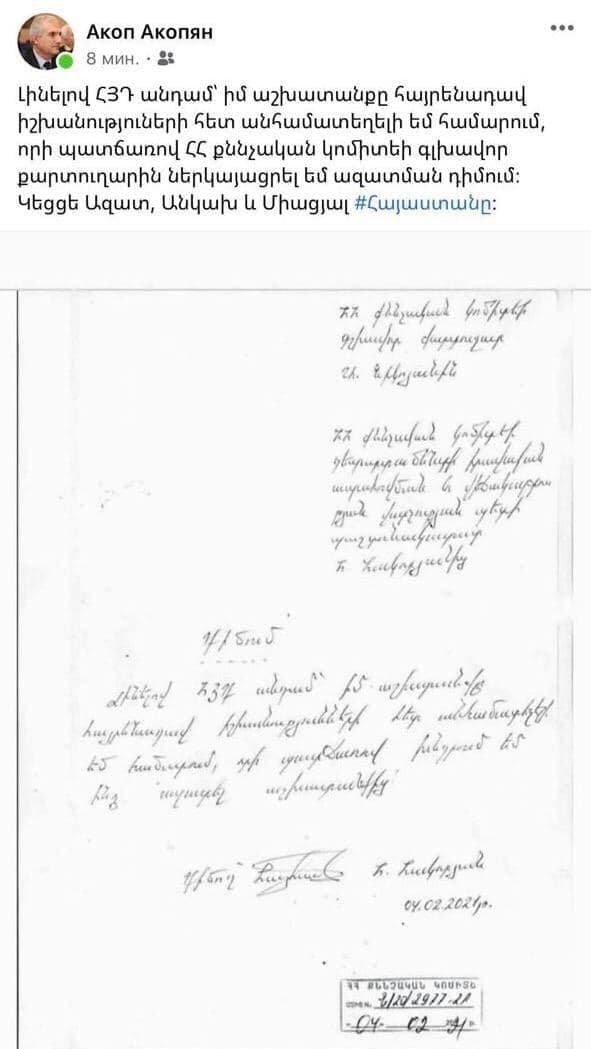 Акоп Акопян
8 мин. ·
Լինելով ՀՅԴ անդամ՝ իմ աշխատանքը հայրենադավ
իշխանություների հետ անհամատեղելի եմ համարում,
որի պատճառով ՀՀ քննչական կոմիտեի գլխավոր
քարտուղարին ներկայացրել եմ ազատման դիմում:
Կեցցե Ազատ, Անկախ և Միացյալ #Հայաստանը:
ՀՀ քննչական կոմիտեի
գլխավոր քարտուղար
ՀՀ քննչական կոմիտեի
պաշտոնակատար
Հ. Հակոբյանից
Դիմում
Լինելով ՀՅԴ անդամ՝ իմ աշխատանքը
հայրենադավ իշխանությունների հետ անհամատեղելի
եմ համարում, որի պատճառով խնդրում եմ
ինձ ազատել աշխատանքից:
Դիմող՝ Հ. Հակոբյան
04.02.2021թ.
ՀՀ ՔՆՆՉԱԿԱՆ ԿՈՄԻՏԵ
04 02 2021